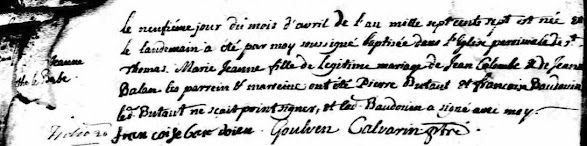 le neufieme jour du mois d'avril de l'an mille sept cents sept est née et
le landemain a été par moy sousigné baptisée dans l'Eglise paroissiale de st
Thomas. Marie Jeanne fille de Legitime mariage de Jean Colombe et de Jeanne
Balan les parrein et marreine ont été Pierre Butaut et francoise Baudouin
led Butaut ne scait point signer, et lad Baudouin a signé avec moy.
francoise bau doien. Goulven Calvarin ptre.
Jeanne